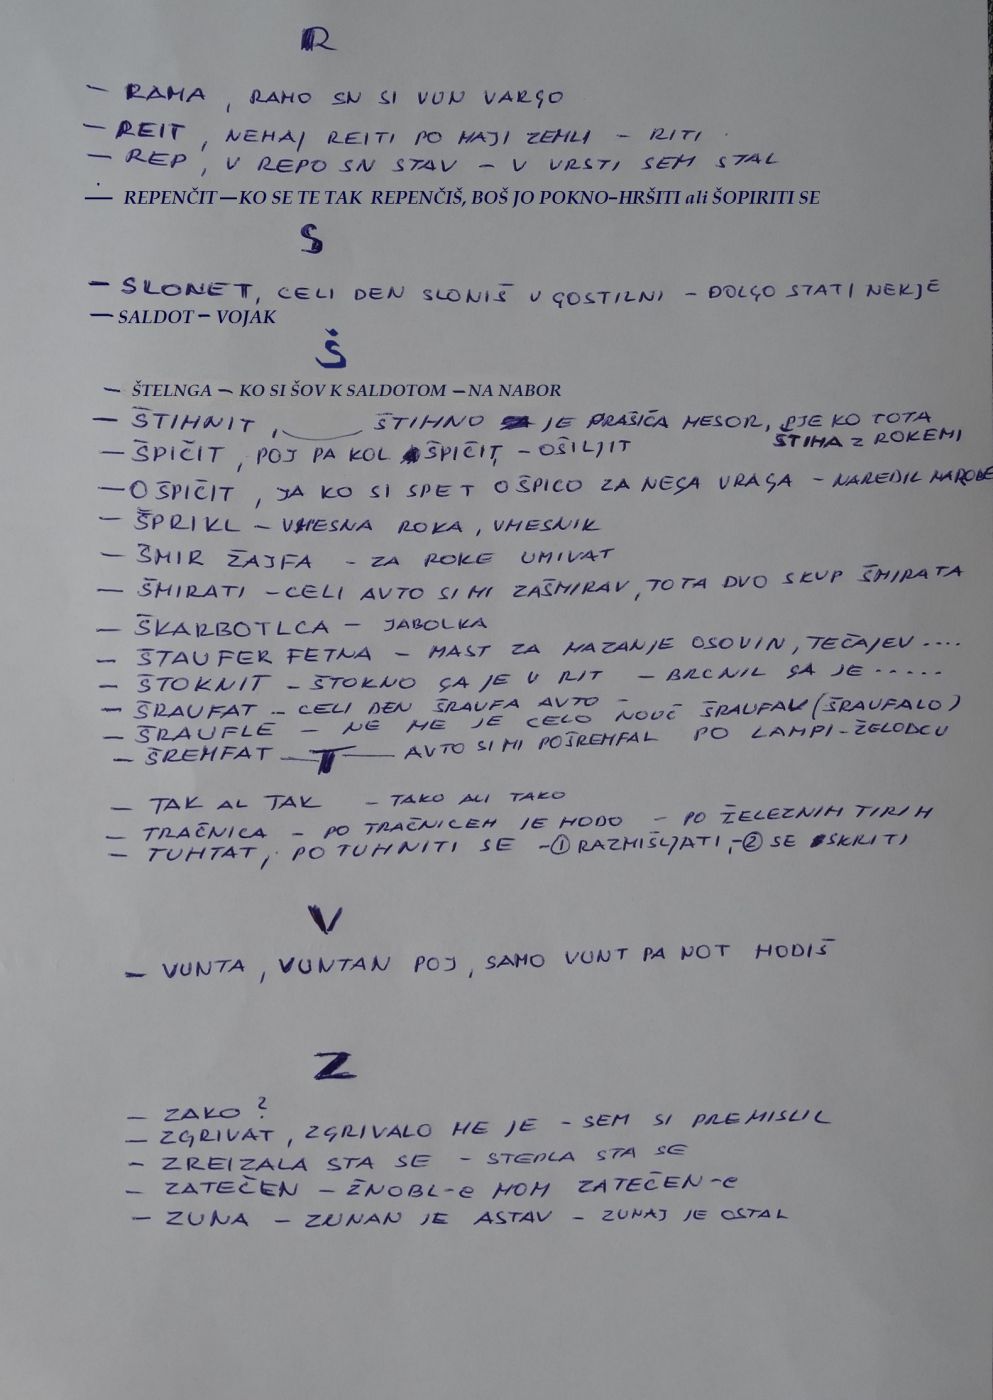 R
— RAMA, RAMO SN SI VUN VARGO
— REIT, NEMAJ REITI PO MAJI ZEMLI – RITI
— REP, V REPO SN STAV – V VRSTI SEM STAL
— REPENČIT — KO SE TE TAK REPENČIŠ, BOŠ JO POKNO–HRŠITI ali ŠOPIRITI SE
S
— SLONET, CELI DEN SLONIŠ V GOSTILNI – DOLGO STATI NEKJE
— SALDOT – VOJAK
Š
— ŠTELNGA – KO SI ŠOV K SALDOTOM – NA NABOR
— ŠTIHNIT, ŠTIHNO JE PRAŠIČA MESOR, PJE KO TOTA
ŠTIHA Z ROKEMI
— ŠPIČIT, POJ PA KOL ŠPIČIT, – OŠILJIT
— OŠPIČIT, JA KO SI SPET OŠPICO ZA NEGA VRAGA – NAREDIL NAROBE
— ŠPRIKL – VMESNA ROKA, VMESNIK
— ŠMIR ŽAJFA – ZA ROKE UMIVAT
— ŠMIRATI – CELI AVTO SI MI ZAŠMIRAV, TO TA DVO SKUP ŠMIRATA
— ŠKARBOTLCA – JABOLKA
— ŠTAUFER FETNA – MAST ZA MAZANJE OSOVIN, TEČAJEV ....
— ŠTOKNIT – ŠTOKNO GA JE V RIT – BRCNIL GA JE .....
— ŠRAUFAT – CELI DEN ŠRAUFA AVTO –
— ŠRAUFLE – NE ME JE CELO NOUČ ŠRAUFAV (ŠRAUFALO)
— ŠREMFAT — AVTO SI MI POŠREMFAL PO LAMPI – ŽELODCU
T
— TAK AL TAK – TAKO ALI TAKO
— TRAČNICA – PO TRAČNICEH JE HODO – PO ŽELEZNIH TIRIH
— TUHTAT, POTUHNITI SE – ① RAZMIŠLJATI, – ② SE SKRITI
V
— VUNTA, VUNTAN POJ, SAMO VUNT PA NOT HODIŠ
Z
— ZAKO?
— ZGRIVAT, ZGRIVALO ME JE – SEM SI PREMISLIL
— ZREIZALA STA SE – STEPLA STA SE
— ZATEČEN – ŽNOBL-e MOM ZATEČEN-e
— ZUNA – ZUNAN JE ASTAV – ZUNAJ JE OSTAL